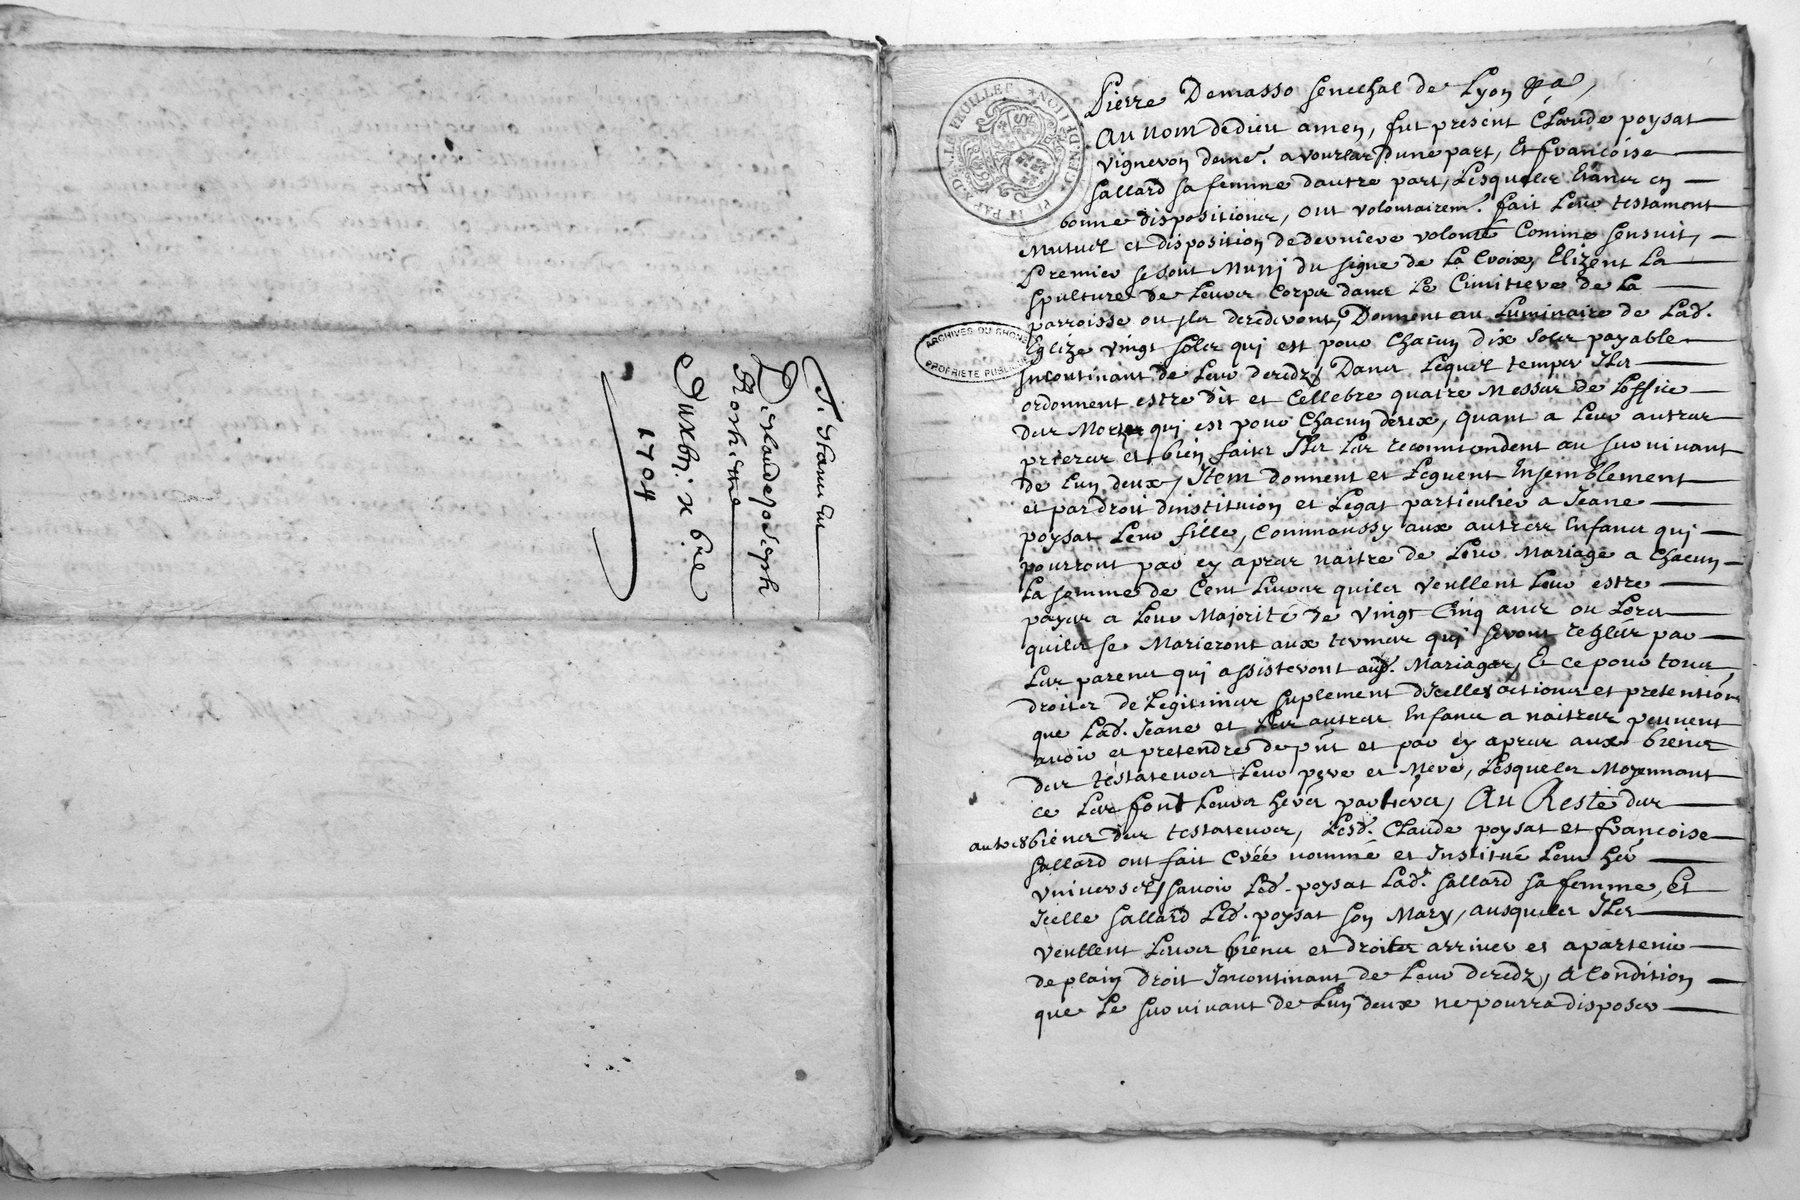 Testament
De Claude Joseph
Du xbri x bre
1704
ARCHIVES DU RHONE
PROPRIETE PUBLIQUE
Pierre Demasso senechal de Lyon
Au nom de dieu amen, fut présent Claude poysat
vigneron deme. a vourlas dune part, Et francoise
Gallard sa femme dautre part, Lesqueles Etans en
bonne dispositions, ont volontairem. fait Leur testament
Mutuel et disposition de derniere volonté Comme sensuit,
Premier se sont Muny du signe de La Croix, Elizent La
spulture de Leurs Corps dans Le Cimitiere de La
parroisse ou jls decederont, Donnent au Luminaire de Lad.
Eglize vingt sols qui est pour Chacun dix sols payable
jncontinant de Leur decedz, Dans Lequel temps Ils
ordonnent estre dit et Cellebre quatre Messes de Loffice
des Morts qui est pour Chacun deux, quant a Leur autres
prieres et bien faits Ils Les recommendent au survivant
de Lun deux, Item donnent et Leguent Ensemblement
et par droit dinstituion et Legat particulier a Jeane
poysat Leur fille, Commaussy aux autres Enfans qui
pourront par cy apres naitre de Leur Mariage a Chacun
La somme de Cent Livres quils veullent Leur estre
payes a Leur Majorité de vingt Cinq ans ou Lors
quils se Marieront aux termes qui seront reglés par
Les parens qui assisteront aud. Mariages, Et ce pour tous
droits de Legitimes suplement dicelles actions et pretentions
que Lad. Jeane et Les autres Enfans a naitres peuvent
avoir et pretendre de pñt et par cy apres aux biens
des testateurs Leur pere et Mere, Lesquels Moyennant
ce Les font Leurs herés partiers, Au Reste des
autres biens des testateurs, Lesd. Claude poysat et francoise
Gallard ont fait créé nommé et Institué Leur heŕ
vniversel, savoir Led. poysat Lad. Gallard sa femme, Et
Icelle Gallard Led. poysat son Mary, ausquels Ils
veullent Leurs biens et droits arriver et apartenir
de plain droit Incontinant de Leur decedz, A Condition
que Le survivant de Lun deux ne pourra disposer